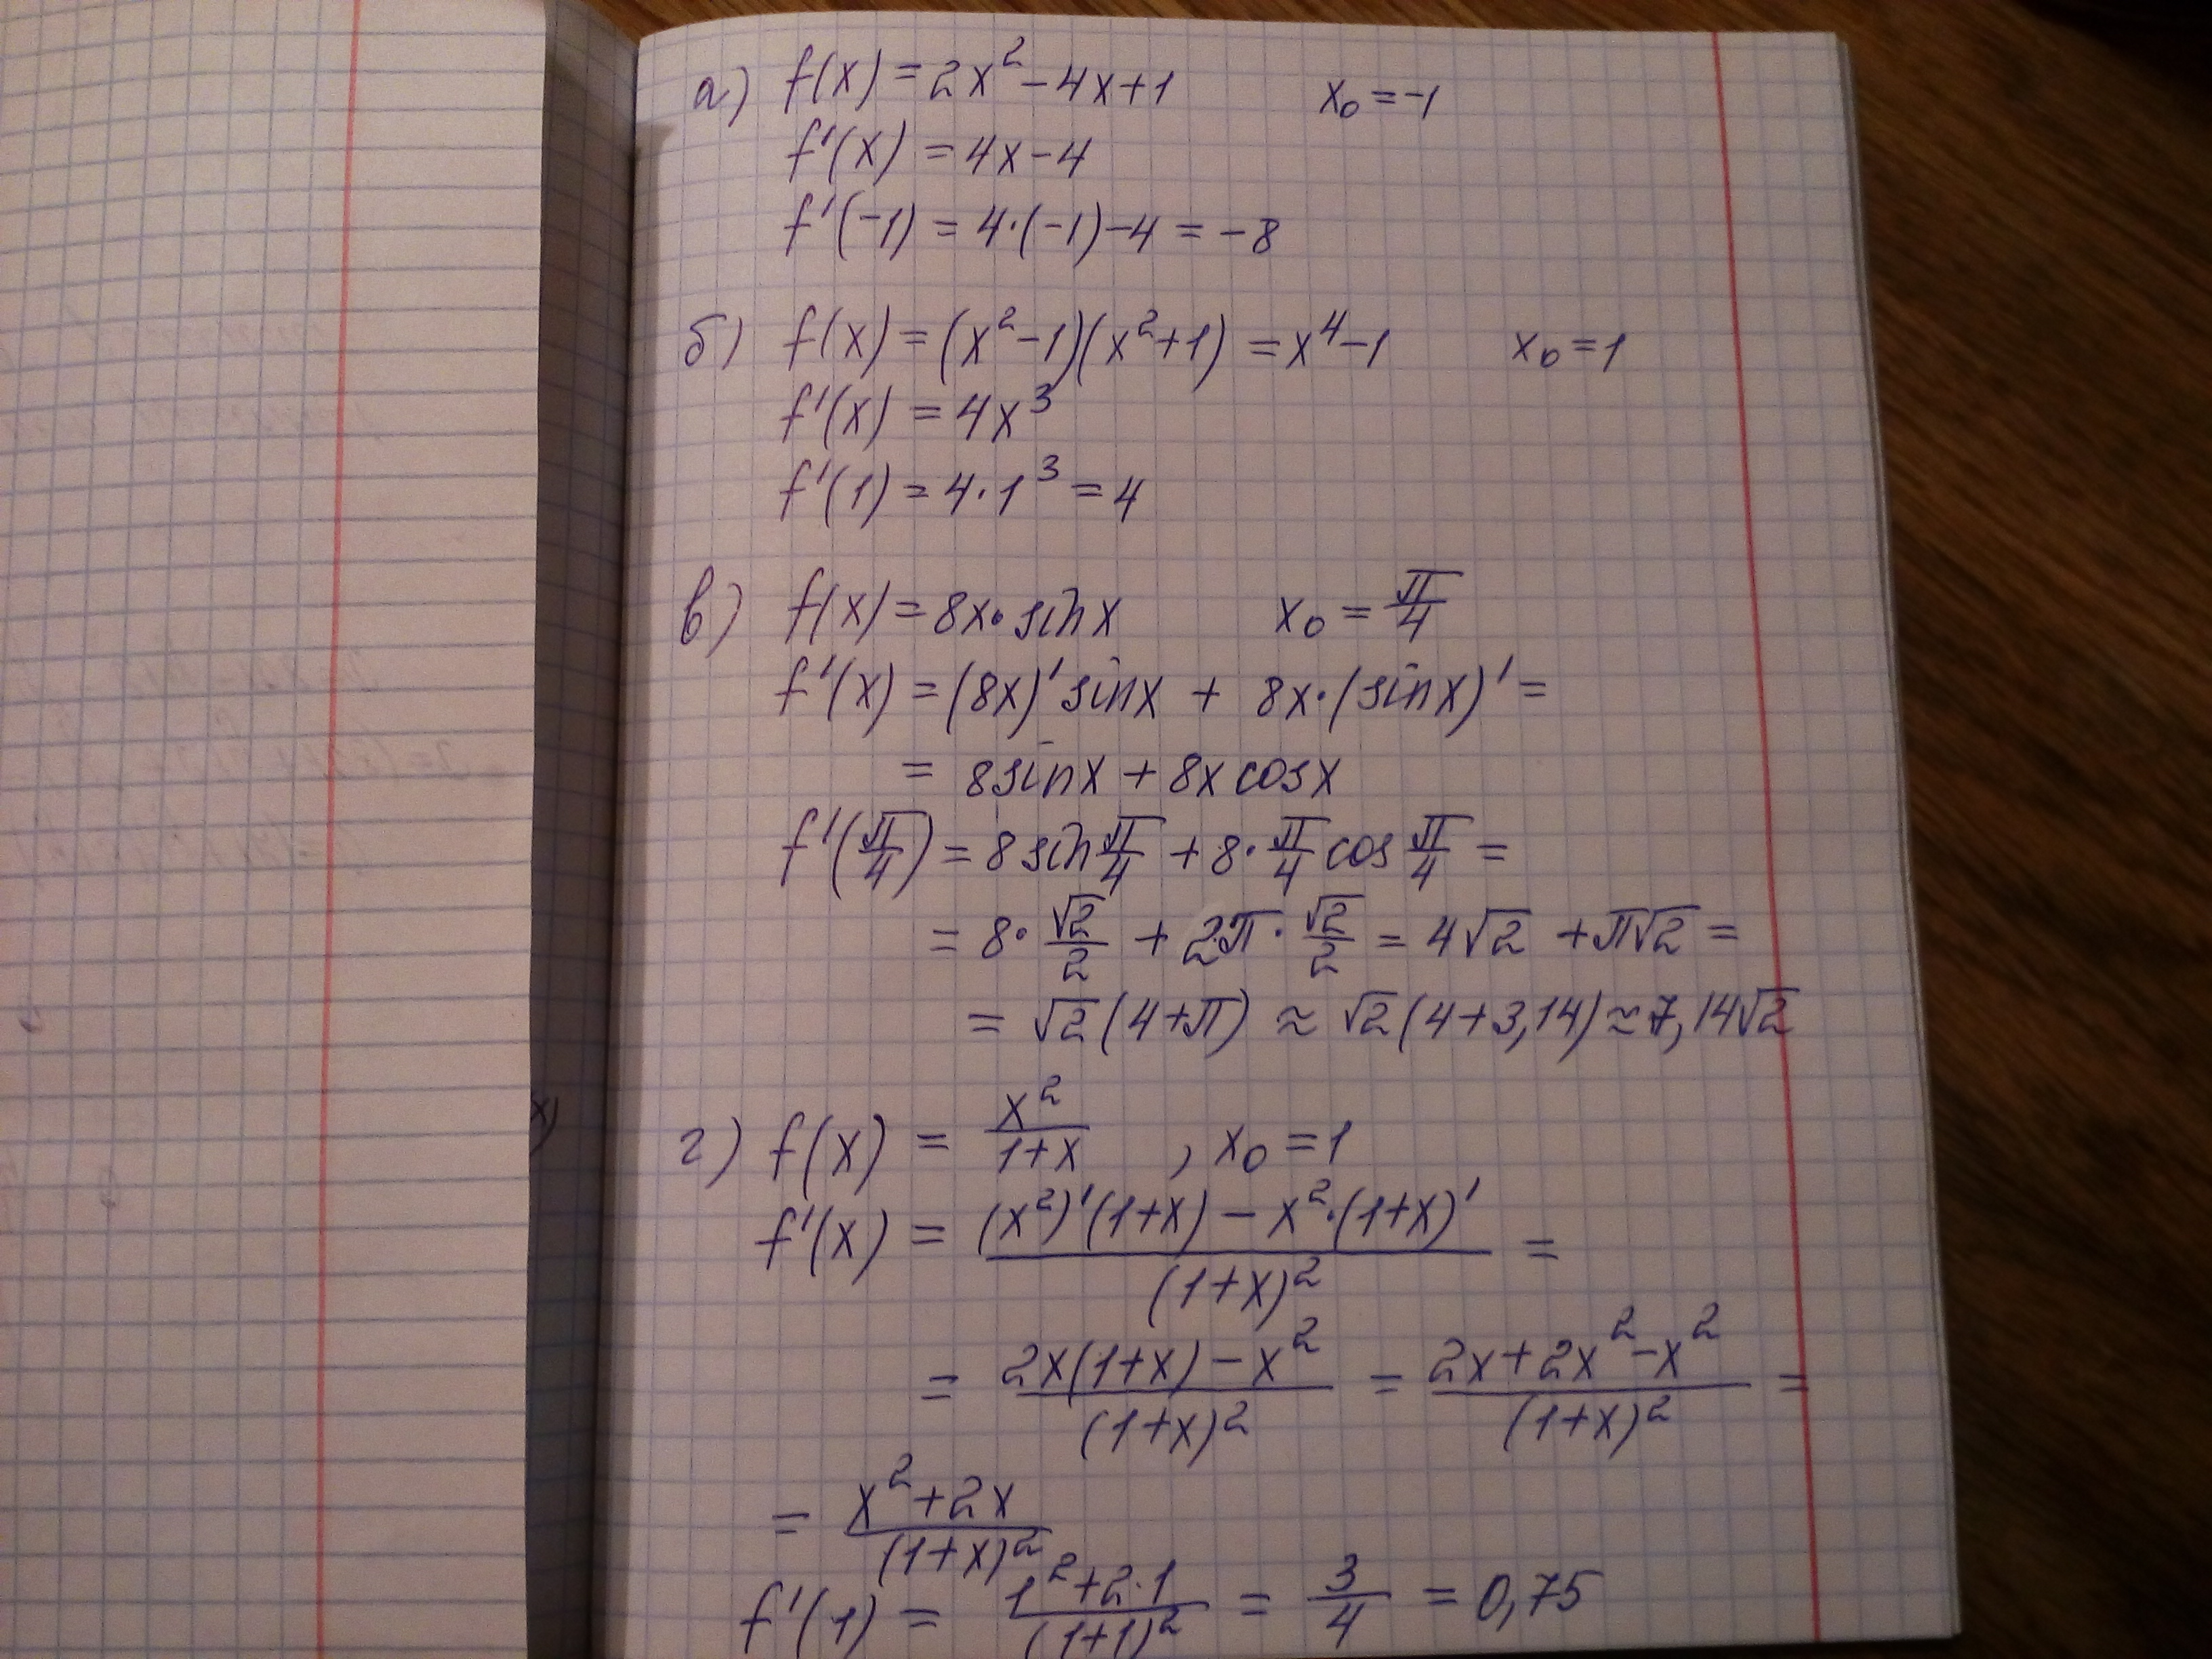 а) f(x) = 2x² - 4x + 1 x₀ = -1
f'(x) = 4x - 4
f'(-1) = 4·(-1) - 4 = -8
б) f(x) = (x² - 1)(x² + 1) = x⁴ - 1 x₀ = 1
f'(x) = 4x³
f'(1) = 4·1³ = 4
в) f(x) = 8x·sinx x₀ = π/4
f'(x) = (8x)'sinx + 8x·(sinx)' =
= 8sinx + 8x cosx
f'(π/4) = 8 sin π/4 + 8·π/4 cos π/4 =
= 8·√2/2 + 2π·√2/2 = 4√2 + π√2 =
= √2(4+π) ≈ √2(4+3,14) ≈ 7,14√2
г) f(x) = x²/(1+x) , x₀ = 1
f'(x) = ((x²)'(1+x) - x²·(1+x)')/(1+x)² =
= (2x(1+x) - x²)/(1+x)² = (2x + 2x² - x²)/(1+x)² =
= (x² + 2x)/(1+x)²
f'(1) = (1² + 2·1)/(1+1)² = 3/4 = 0,75